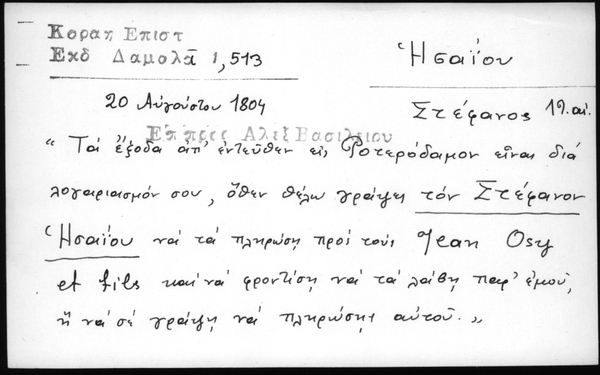 Κοραη Επιστ
Εκδ Δαμαλᾶ 1,513
Ἡσαΐου
20 Αὐγούστου 1804
Στέφανος 19. αἰ.
Ἐπ πρὸς Αλεξ Βασιλειου
"Τὰ ἔξοδα ἀπ' ἐντεῦθεν εἰς Ροτερόδαμον εἶναι διὰ
λογαριασμόν σου, ὅθεν θέλω γράψει τὸν Στέφανον
Ἡσαΐου νὰ τὰ πληρώσῃ πρὸς τοὺς Jean Osy
et fils καὶ νὰ φροντίσῃ νὰ τὰ λάβῃ παρ' ἐμοῦ,
ἢ νὰ σὲ γράψῃ νὰ πληρώσῃς αὐτοῦ."